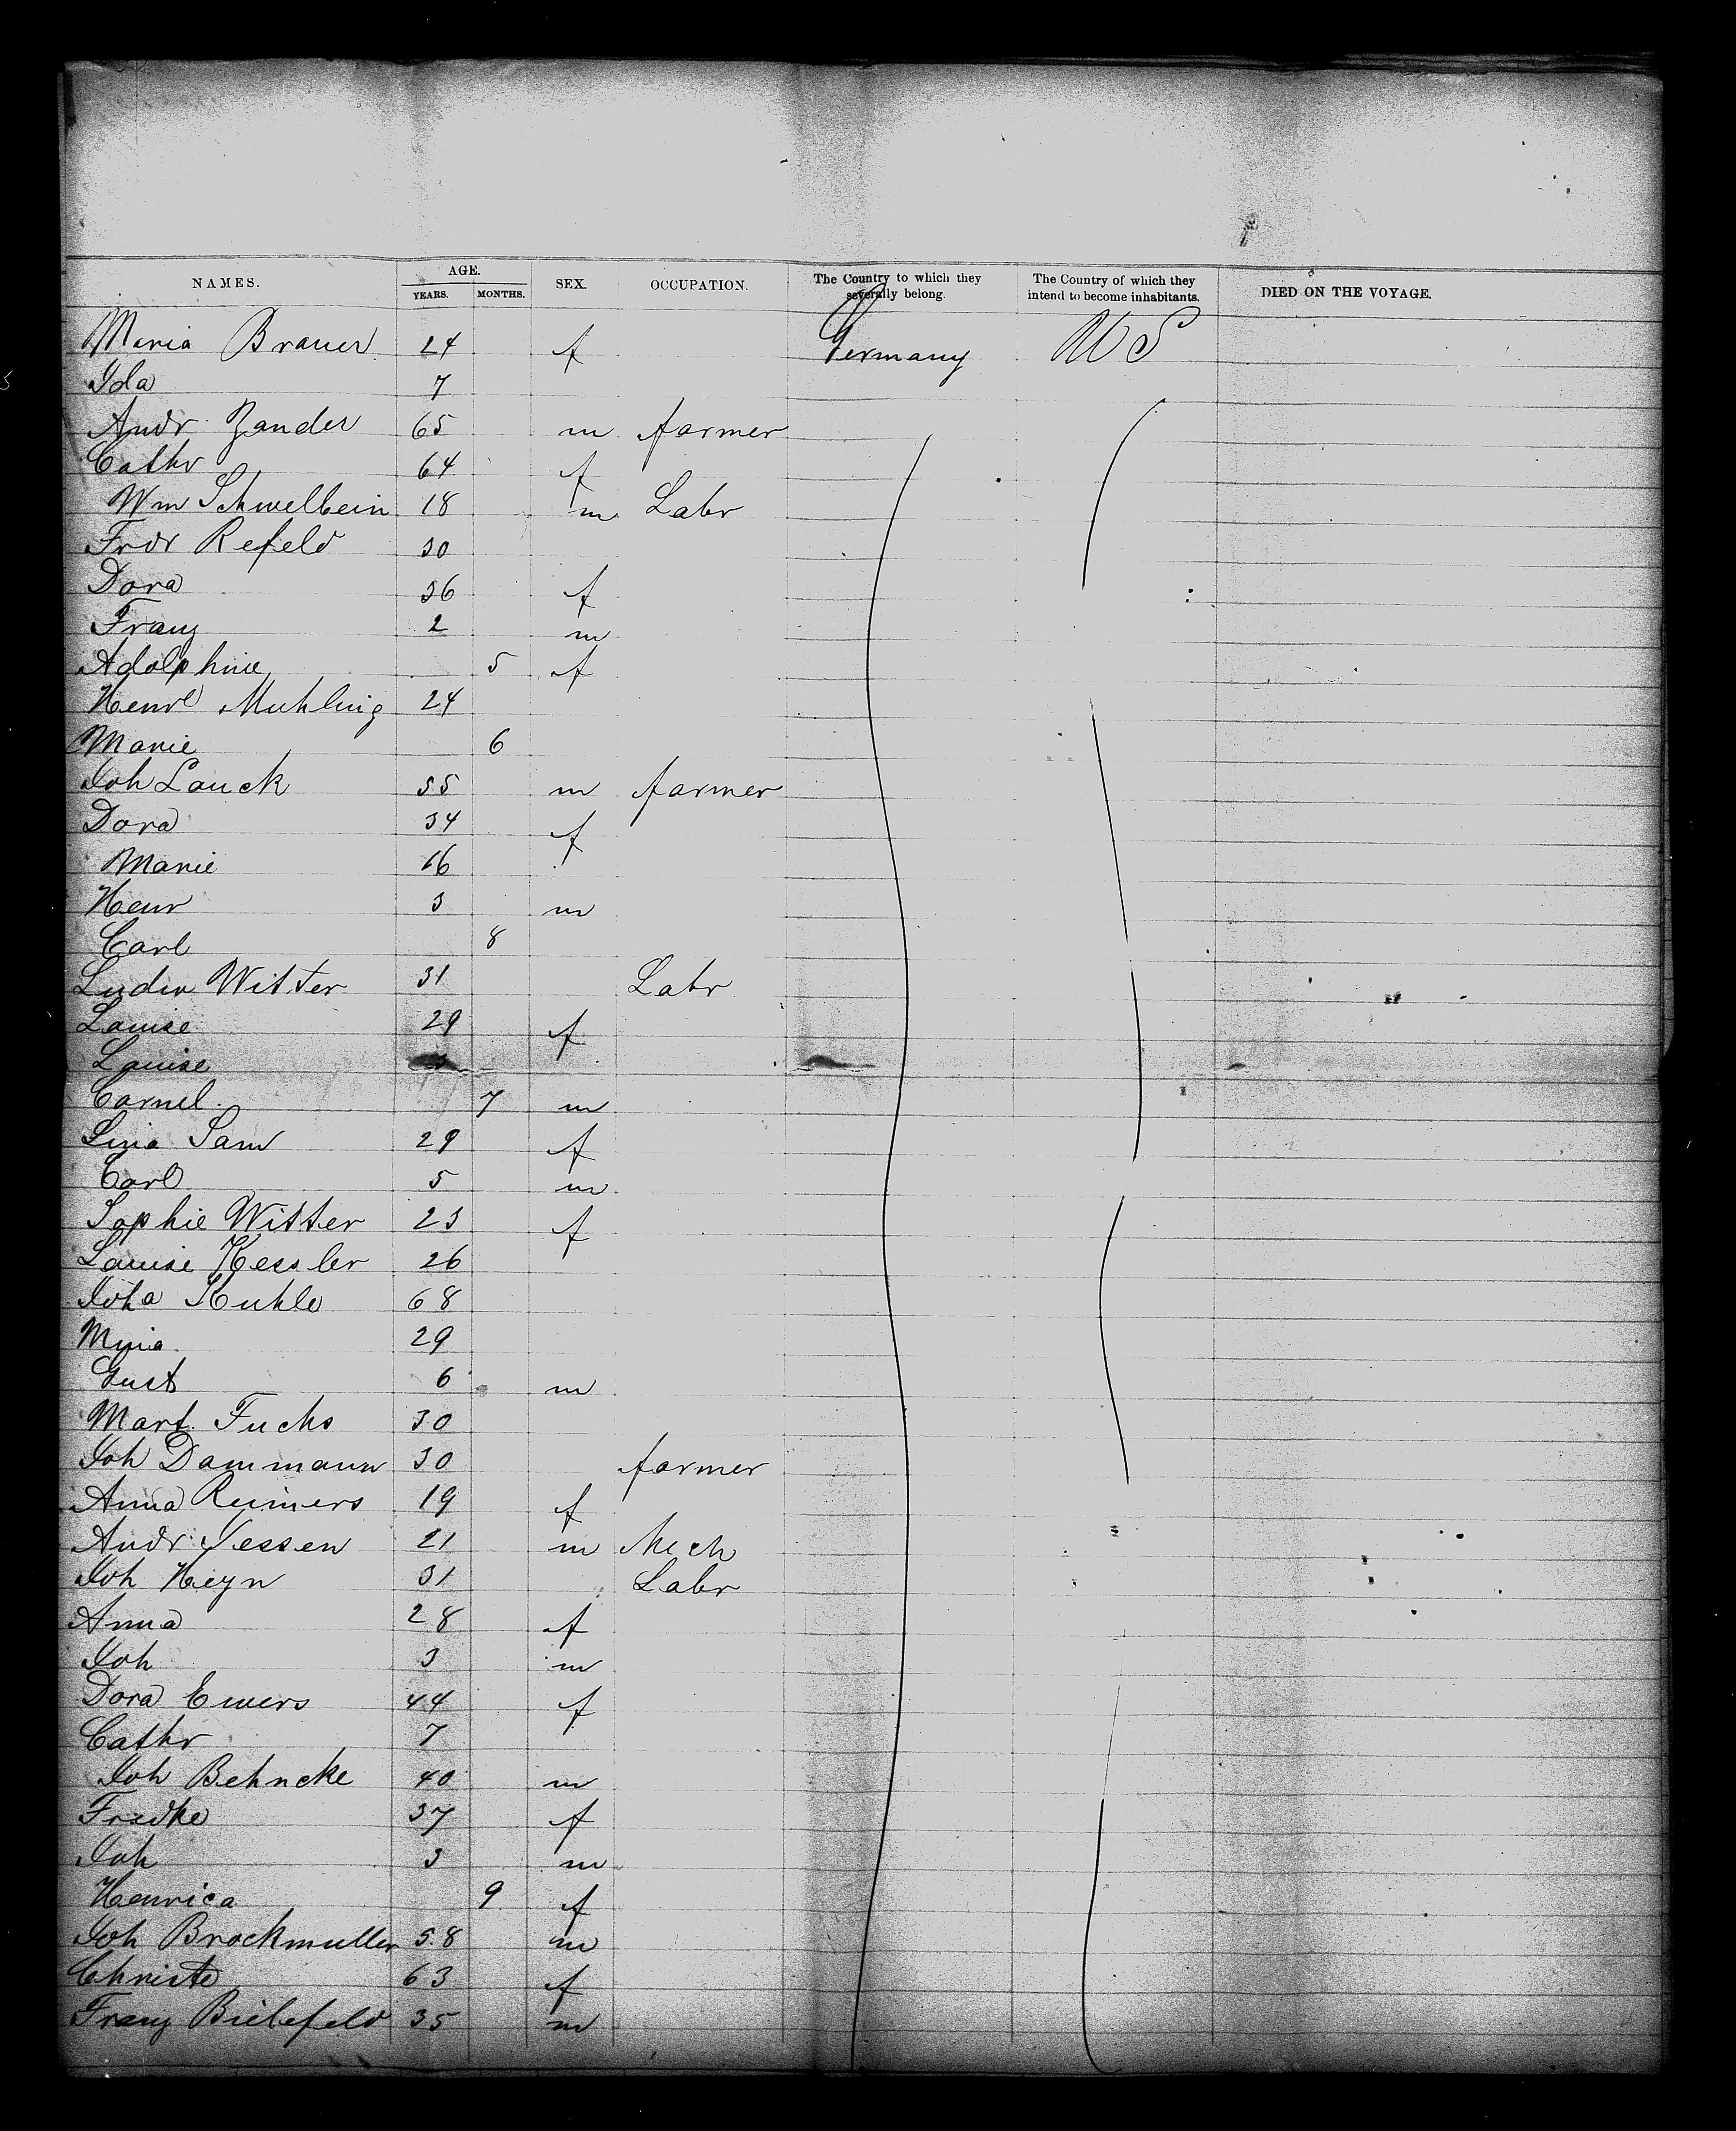 NAMES. AGE. SEX. OCCUPATION. The Country to which they severally belong. The Country of which they intend to become inhabitants. DIED ON THE VOYAGE.
YEARS. MONTHS.
Maria Brauer 24 f Germany US
Ida 7
Andr Zander 65 m farmer
Cathr 64 f
Wm Schwelbein 18 m Labr
Frdr Refeld 30
Dora 36 f
Franz 2 m
Adolphine 5 f
Henre Muhling 24
Marie 6
Joh Lauck 35 m farmer
Dora 34 f
Marie 16
Henr 3 m
Carl 8
Ludw Witter 31 Labr
Louise 29 f
Louise
Cornel 7 m
Lina Sam 29 f
Carl 5 m
Sophie Witter 23 f
Louise Kessler 26
Joha Kuhle 68
Mina 29
Gust 6 m
Mart Fuchs 30
Joh Dammann 30 farmer
Anna Reimers 19 f
Andr Jessen 21 m Mech
Joh Heyn 31 Labr
Anna 28 f
Joh 3 m
Dora Ewers 44 f
Cathr 7
Joh Behncke 40 m
Fredke 37 f
Joh 3 m
Henrica 9 f
Joh Brockmuller 58 m
Christe 63 f
Franz Bielefeld 35 m